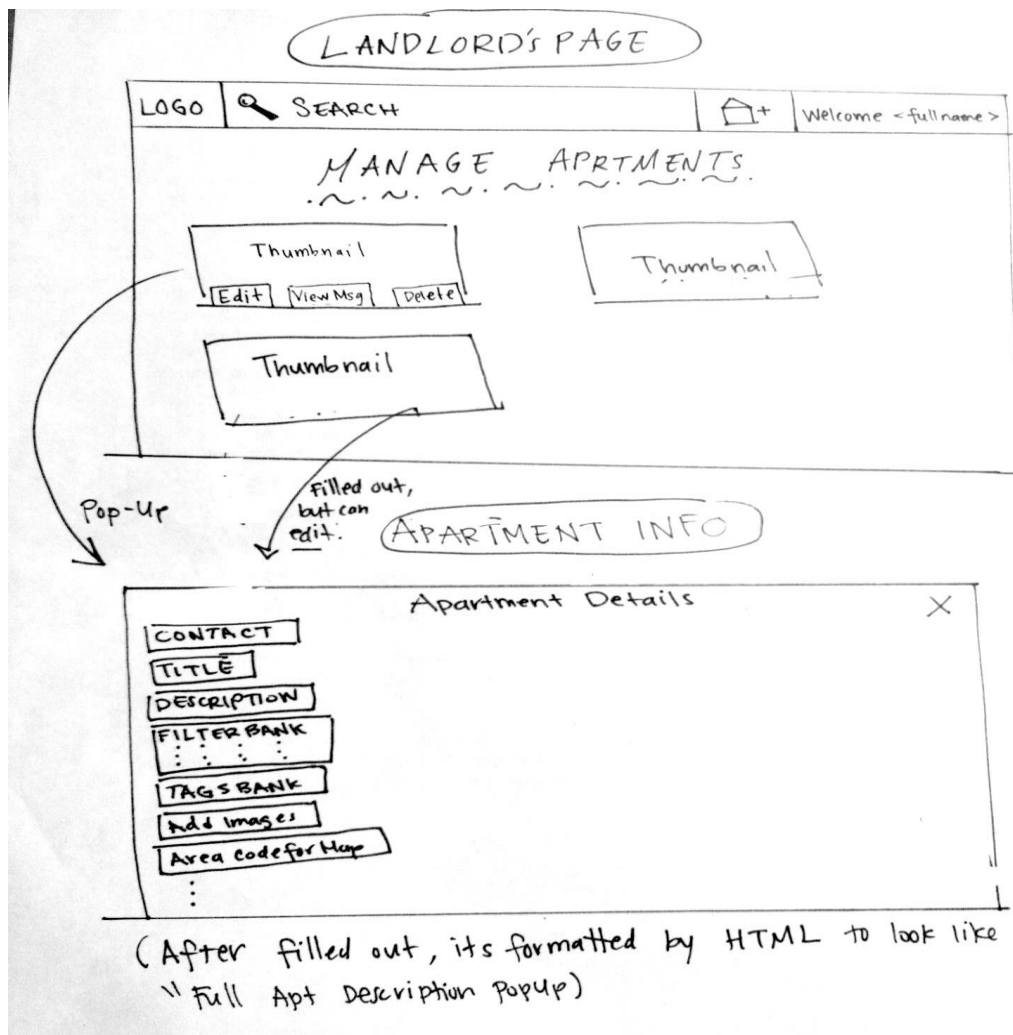 LANDLORD'S PAGE
LOGO SEARCH + Welcome <fullname>
MANAGE APRTMENTS
Thumbnail
Edit View Msg Delete
Thumbnail
Thumbnail
Pop-Up
Filled out,
but can
edit.
APARTMENT INFO
Apartment Details X
CONTACT
TITLE
DESCRIPTION
FILTER BANK
TAGS BANK
Add Images
Area code for Map
(After filled out, its formatted by HTML to look like
" Full Apt Description PopUp)